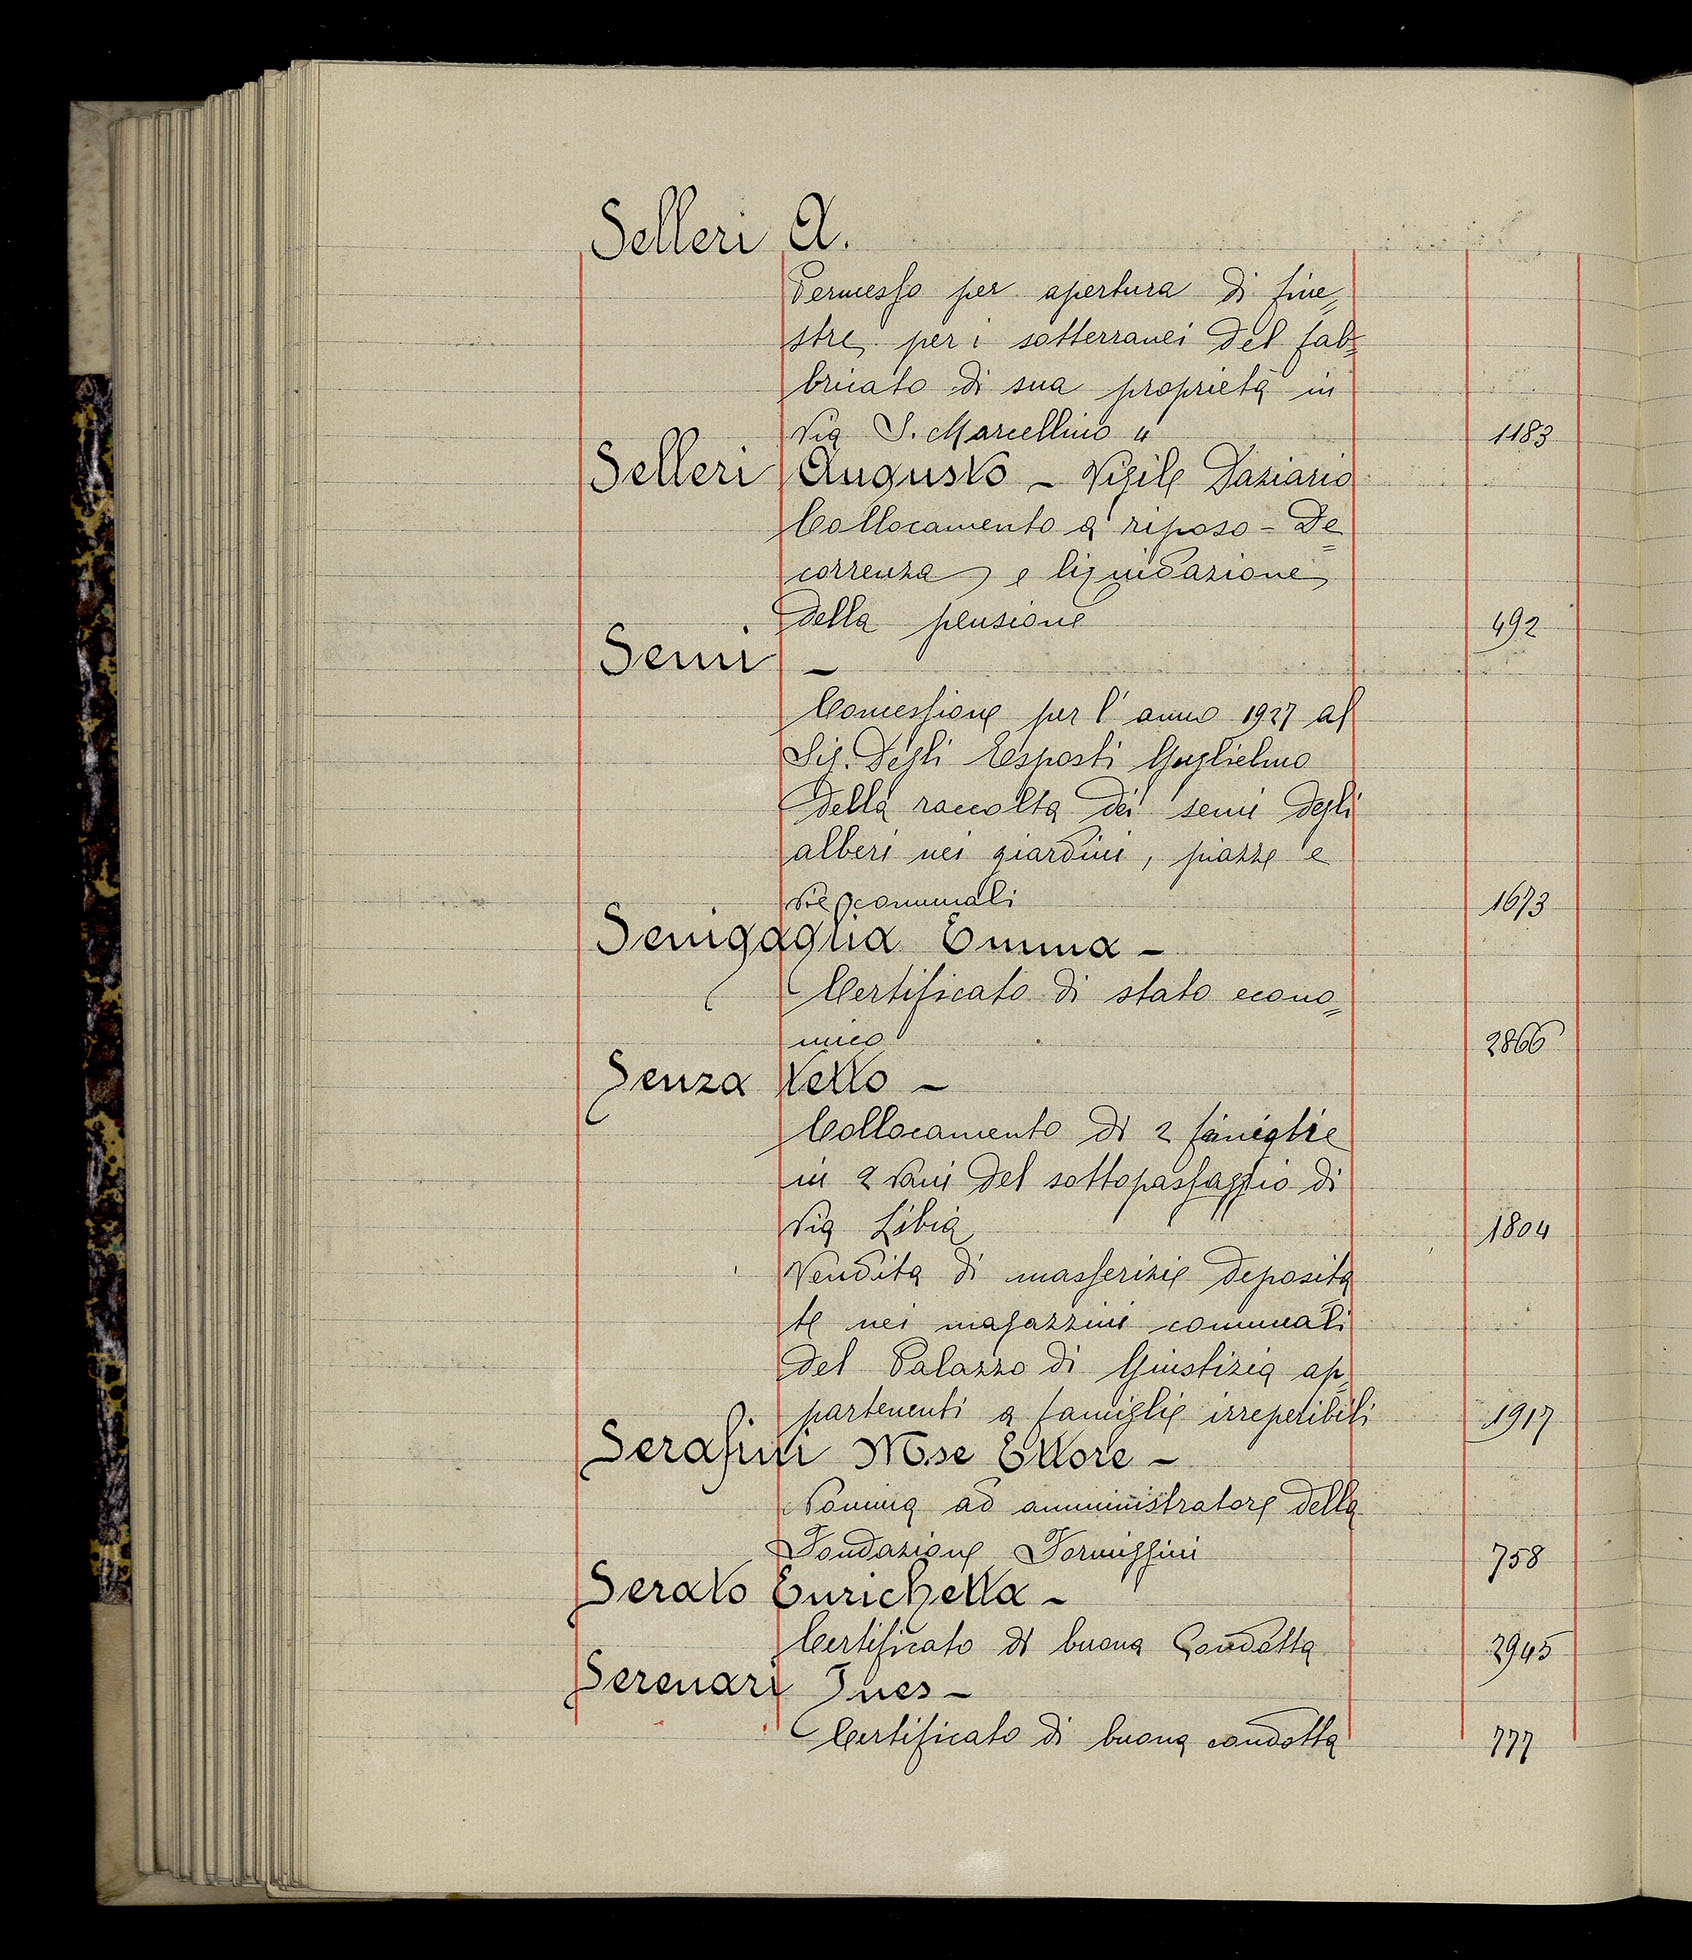 Selleri A.
Permesso per apertura di fine=
stre per i sotterranei del fab=
bricato di sua proprietà in
Via S. Marcellino 4 1183
Selleri Augusto - Vigile Daziario
Collocamento a riposo - De=
correnza e liquidazione
della pensione 492
Semi -
Concessione per l'anno 1927 al
Sig. Degli Esposti Guglielmo
della raccolta dei semi degli
alberi nei giardini, piazze e
vie comunali 1673
Senigaglia Emma -
Certificato di stato econo=
mico 2866
Senza tetto -
Collocamento di 2 famiglie
in 2 vani del sottopassaggio di
Via Libia 1804
Vendita di masserizie deposita
te nei magazzini comunali
del Palazzo di Giustizia ap=
partenenti a famiglie irreperibili 1917
Serafini M.se Ettore -
Nomina ad amministratore della
Fondazione Formiggini 758
Serato Enrichetta -
Certificato di buona Condotta 2945
Serenari Ines -
Certificato di buona condotta 777